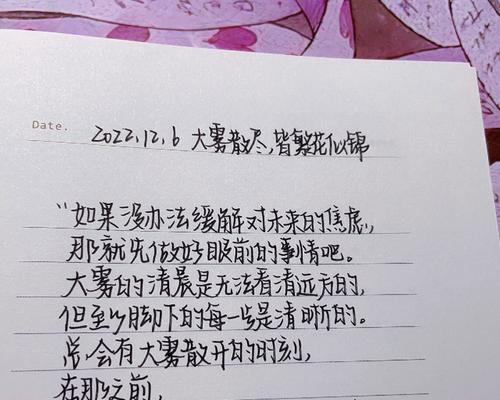 Date. 2022.12.6 大雾散尽,皆繁花似锦
"如果没办法缓解对未来的焦虑,
那就先做好眼前的事情吧。
大雾的清晨是无法看清远方的,
但至少脚下的每一步是清晰的。
总会有大雾散开的时刻,
在那之前,